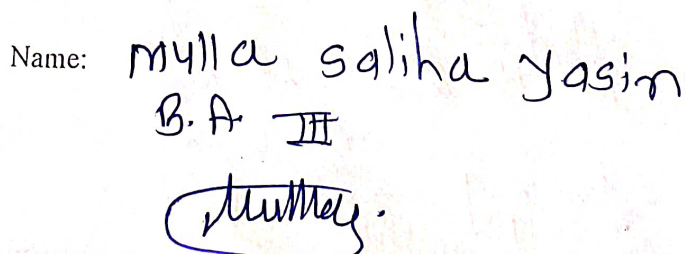 Name: Mulla Saliha Yasin
B. A. III